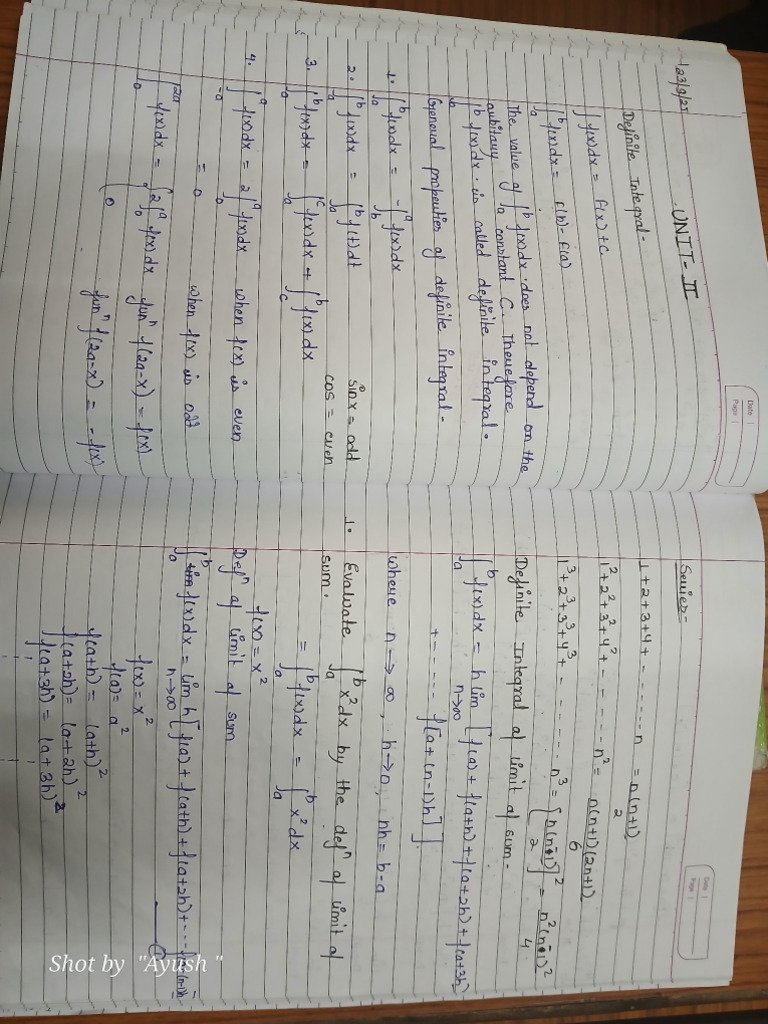 23/9/25
UNIT- II
Date |
Page |
Definite Integral-
∫ f(x)dx = F(x) + C
∫ₐᵇ f(x)dx = F(b) - F(a)
The value of ∫ₐᵇ f(x)dx . does not depend on the
aubitauy constant C. Theuefore
∫ₐᵇ f(x)dx . is called definite integral.
Geneual propeuties of definite integral-
1. ∫ₐᵇ f(x)dx = -∫_bᵃ f(x)dx
2. ∫ₐᵇ f(x)dx = ∫ₐᵇ f(t)dt sinx = odd
3. ∫ₐᵇ f(x)dx = ∫ₐᶜ f(x)dx + ∫_cᵇ f(x)dx cos = even
4. ∫₋ₐᵃ f(x)dx = 2∫₀ᵃ f(x)dx when f(x) is even
= 0 when f(x) is odd
∫₀²ᵃ f(x)dx = { 2∫₀ᵃ f(x)dx funⁿ f(2a-x) = f(x)
0 funⁿ f(2a-x) = -f(x)
Date |
Page |
Seuies-
1+2+3+4+ ------- n = n(n+1)/2
1²+2²+3²+4²+ ------ n² = n(n+1)(2n+1)/6
1³+2³+3³+4³+ ------ n³ = [n(n+1)/2]² = n²(n+1)²/4
Definite Integral of limit of sum-
∫ₐᵇ f(x)dx = h lim n→∞ [f(a) + f(a+h) + f(a+2h) + f(a+3h)
+ ----- f[a+(n-1)h]].
wheue n→∞, h→0, nh = b-a
1. Evaluate ∫ₐᵇ x²dx by the defⁿ of limit of
sum.
= ∫ₐᵇ f(x)dx = ∫ₐᵇ x²dx
f(x) = x²
Defⁿ of limit of sum
∫ₐᵇ f(x)dx = lim n→∞ h[f(a) + f(a+h) + f(a+2h) + --- f(a+(n-1)h
①
f(x) = x²
f(a) = a²
f(a+h) = (a+h)²
f(a+2h) = (a+2h)²
f(a+3h) = (a+3h)²
Shot by "Ayush "